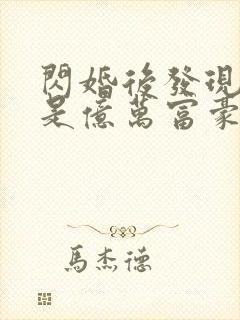 閃婚後發現
是億萬富豪
馬杰德